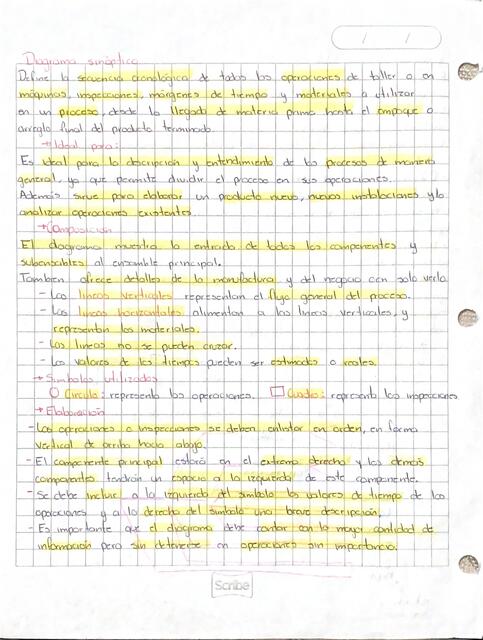 Diagrama sinóptico
Define la secuencia cronológica de todas las operaciones de taller o en
máquinas, inspecciones, márgenes de tiempo y materiales a utilizar
en un proceso, desde la llegada de materia prima hasta el empaque o
arreglo final del producto terminado.
→ Ideal para:
Es ideal para la descripción y entendimiento de los procesos de manera
general, ya que permite dividir el proceso en sus operaciones.
Además sirve para elaborar un producto nuevo, nuevas instalaciones y/o
analizar operaciones existentes.
→ Composición
El diagrama muestra la entrada de todos los componentes y
subensambles al ensamble principal.
También ofrece detalles de la manufactura y del negocio con solo verlo
- Las lineas verticales representan el flujo general del proceso.
- Las lineas horizontales alimentan a las lineas verticales, y
representan los materiales.
- Las lineas no se pueden cruzar.
- Los valores de los tiempos pueden ser estimados o reales.
→ Simbolos utilizados
○ Circulo: representa las operaciones. □ Cuadro: representa las inspecciones
→ Elaboración
- Las operaciones o inspecciones se deben enlistar en orden, en forma
vertical de arriba hacia abajo.
- El componente principal estará en el extremo derecho y los demás
componentes tendrán un espacio a la izquierda de este componente.
- Se debe incluir a la izquierda del simbolo los valores de tiempo de las
operaciones y a la derecha del simbolo una breve descripción.
- Es importante que el diagrama debe contar con la mayor cantidad de
información pero sin detenerse en operaciones sin importancia.
Scribe